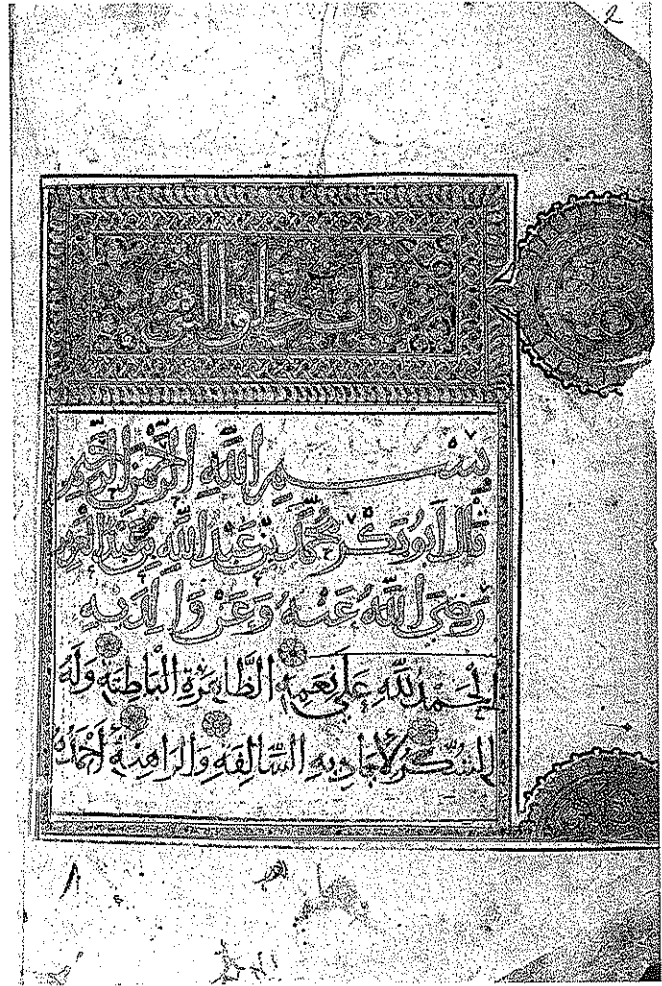 2
كتاب خلق النبي
بِسْمِ اللَّهِ الرَّحْمَنِ الرَّحِيمِ
قَالَ أَبُو بَكْرٍ مُحَمَّدُ بْنُ عَبْدِ اللَّهِ بْنِ عَبْدِ الْعَزِيزِ
رَضِيَ اللَّهُ عَنْهُ وَعَنْ وَالِدَيْهِ
الْحَمْدُ لِلَّهِ عَلَى نِعَمِهِ الظَّاهِرَةِ الْبَاطِنَةِ وَلَهُ
الشُّكْرُ لأَيَادِيهِ السَّالِفَةِ وَالرَّاهِنَةِ أَحْمَدُهُ